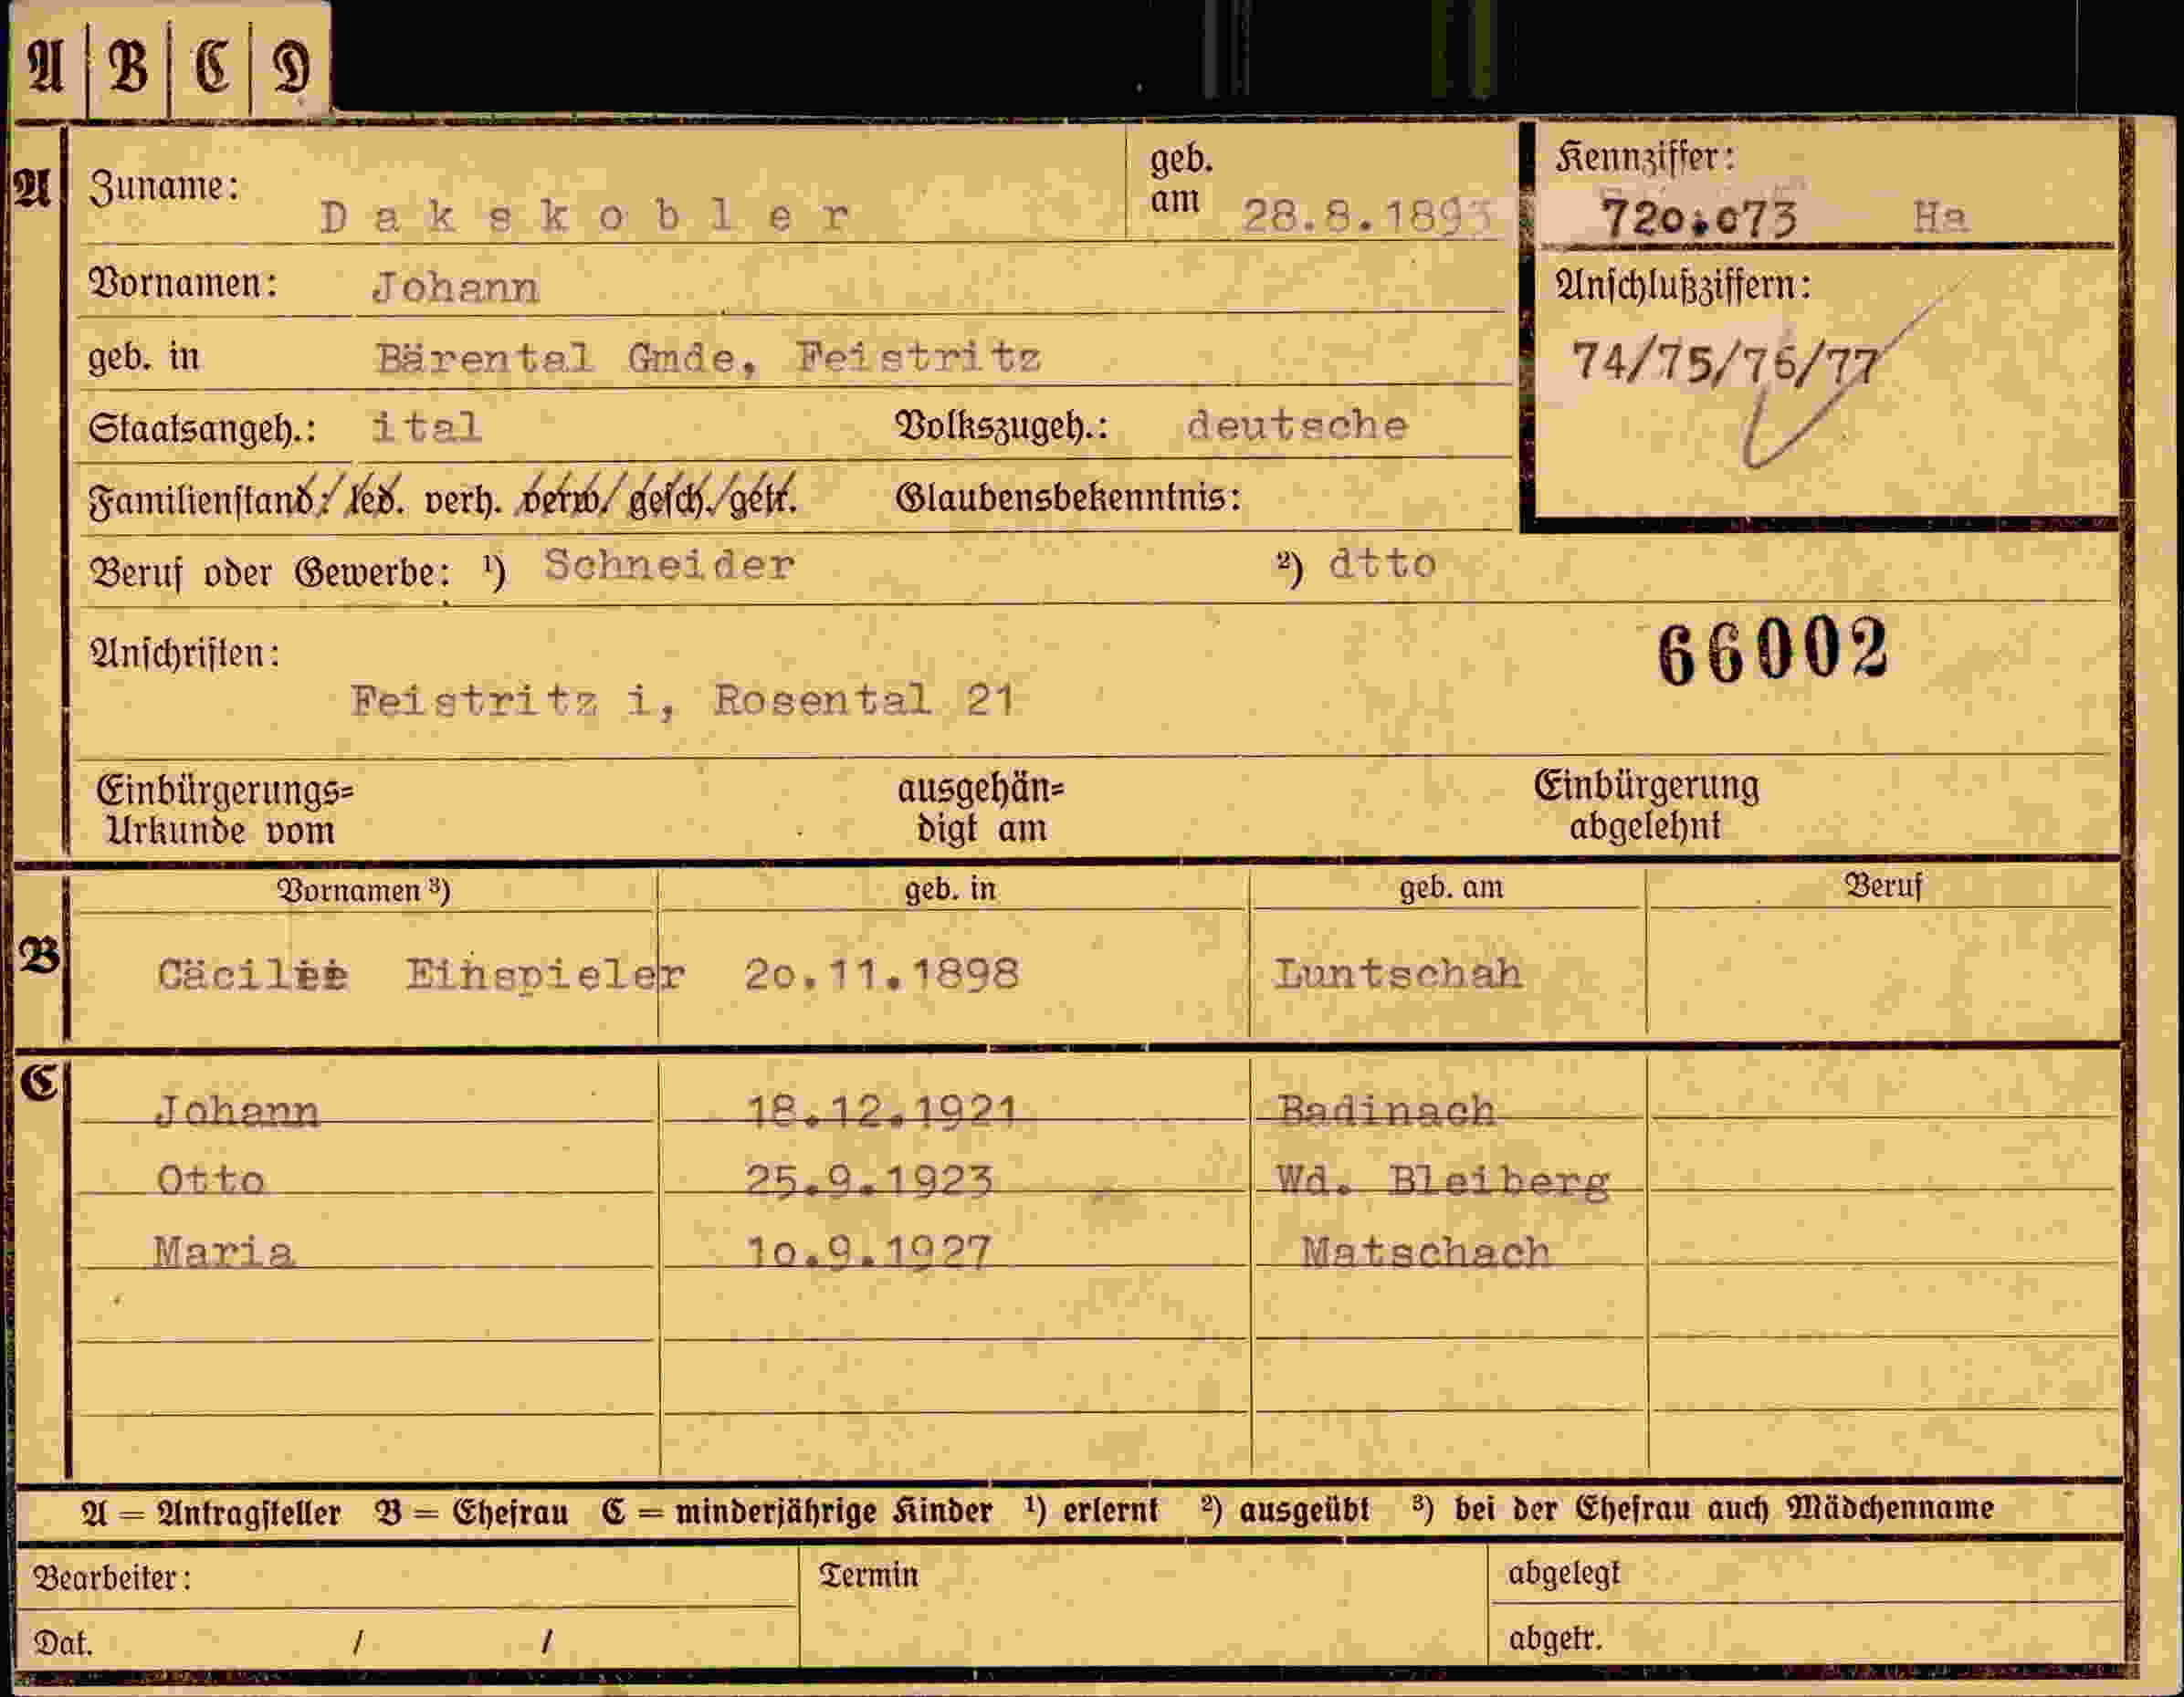 A | B | C | D
A
Zuname: Dakskobler geb. am 28.8.1893
Kennziffer: 720.073 Ha
Vornamen: Johann
Anschlußziffern:
74/75/76/77
geb. in Bärental Gmde, Feistritz
Staatsangeh.: ital Volkszugeh.: deutsche
Familienstand: / led. verh. verw. / gesch. / getr. Glaubensbekenntnis:
Beruf oder Gewerbe: ¹) Schneider ²) dtto
66002
Anschriften:
Feistritz i, Rosental 21
Einbürgerungs= Urkunde vom
ausgehän= digt am
Einbürgerung abgelehnt
B
Vornamen ³) geb. in geb. am Beruf
Einspieler 20.11.1898 Luntschah
C
Johann 18.12.1921 Badinach
Otto 25.9.1923 Wd. Bleiberg
Maria 10.9.1927 Matschach
A = Antragsteller B = Ehefrau C = minderjährige Kinder ¹) erlernt ²) ausgeübt ³) bei der Ehefrau auch Mädchenname
Bearbeiter: Termin abgelegt
Dat. / / abgetr.